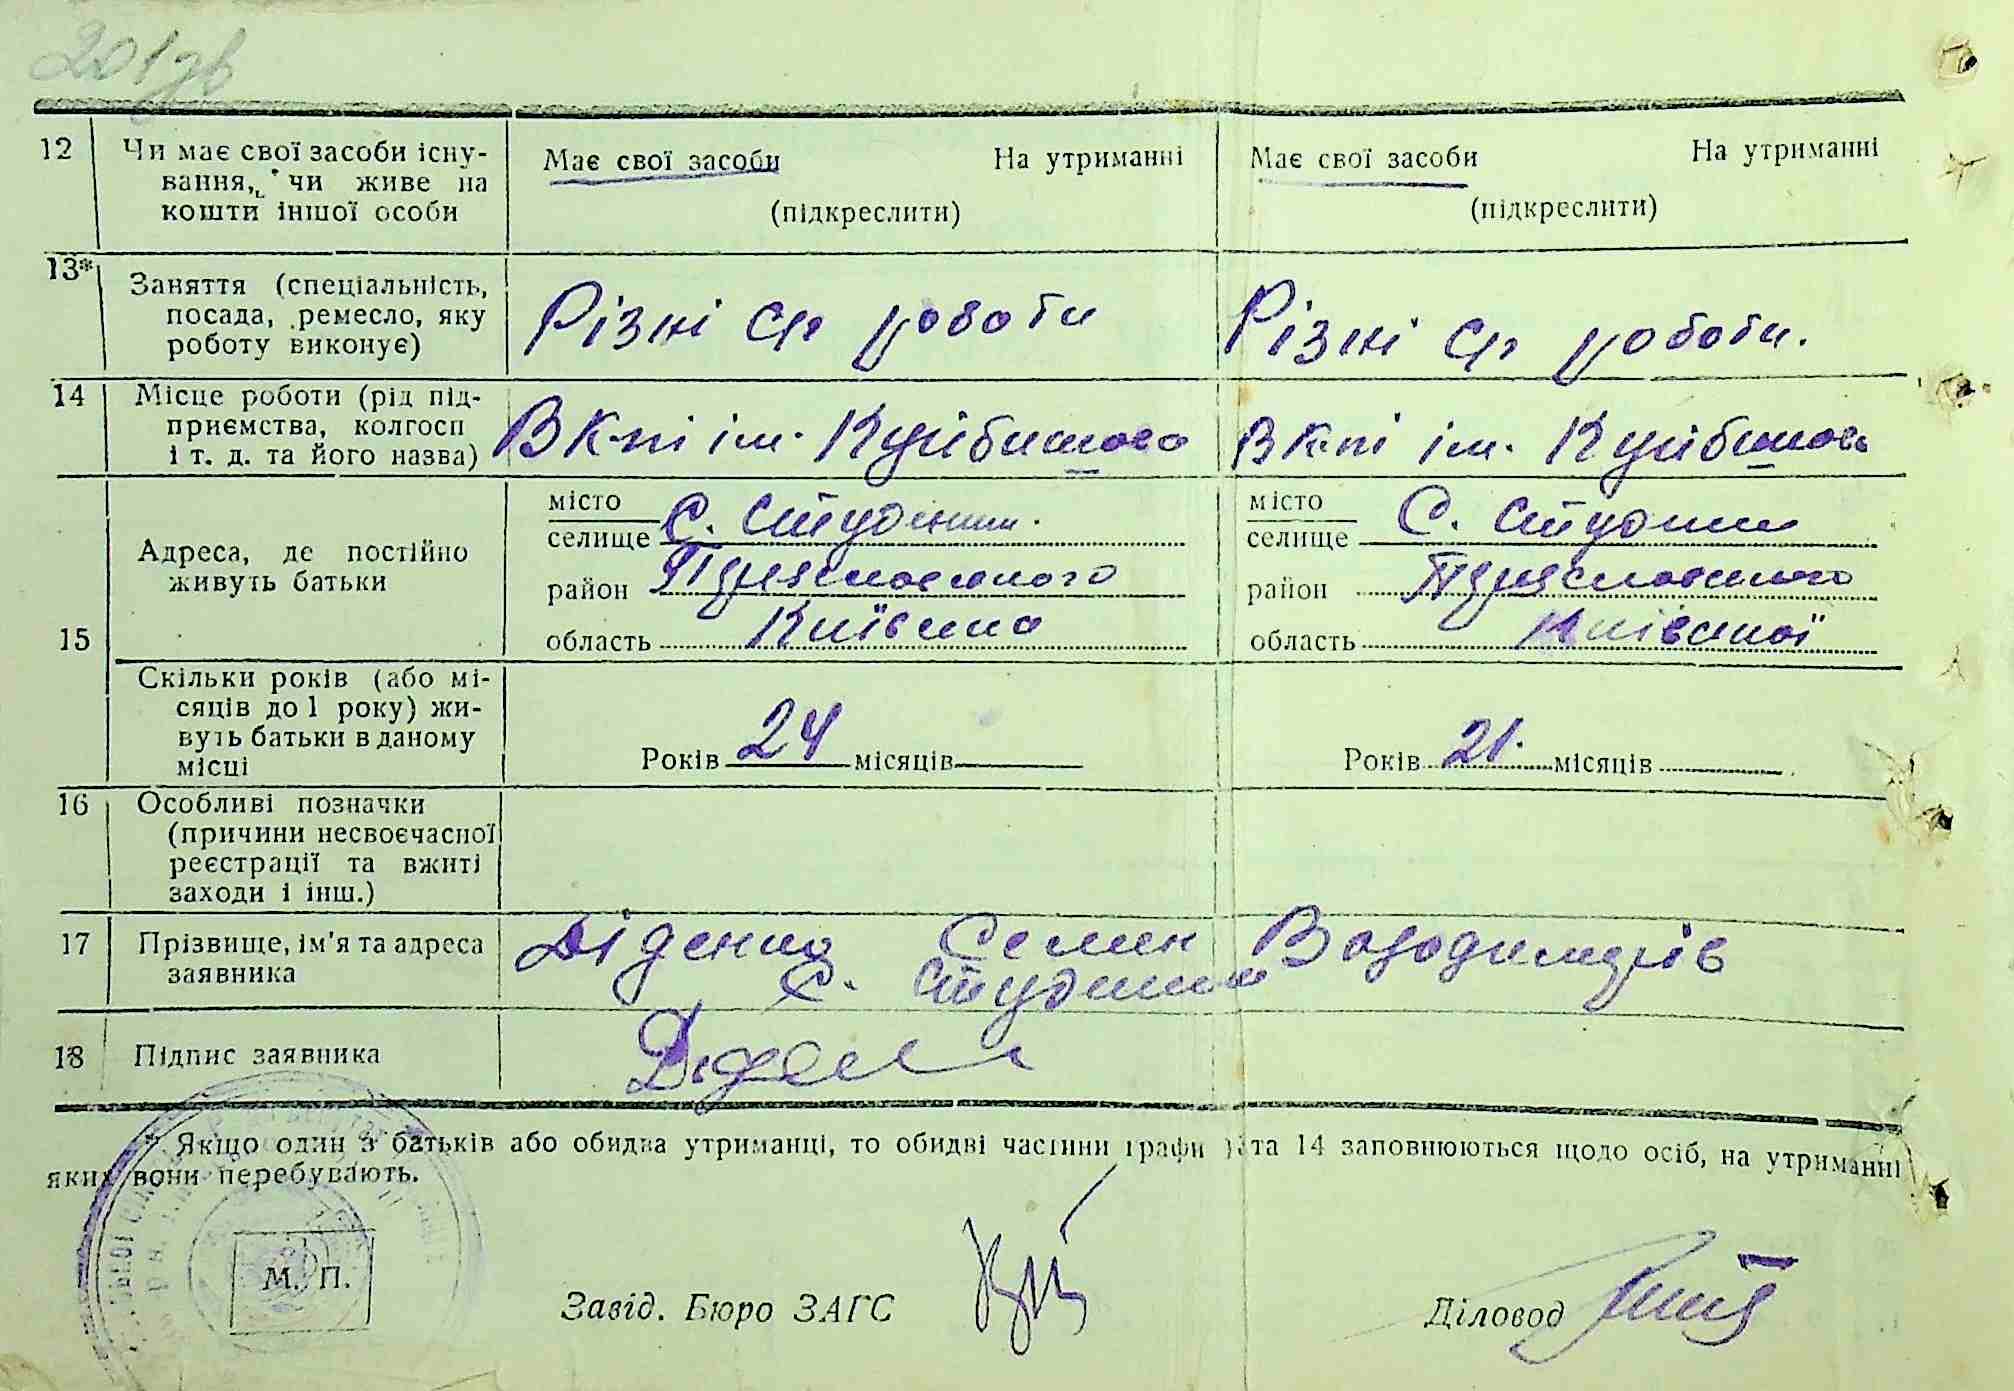 201зв
12 Чи має свої засоби існу-
вання, чи живе на
кошти іншої особи
Має свої засоби На утриманні
(підкреслити)
Має свої засоби На утриманні
(підкреслити)
13* Заняття (спеціальність,
посада, ремесло, яку
роботу виконує)
Різні ср роботи
Різні ср роботи.
14 Місце роботи (рід під-
приємства, колгосп
і т. д. та його назва)
В К-пі ім. Куйбишого
В К-пі ім. Куйбишого
15 Адреса, де постійно
живуть батьки
місто
селище С. Студеники.
район
область Київсько
місто
селище С. Студники
район Переяславського
область Київської
Скільки років (або мі-
сяців до 1 року) жи-
вуть батьки в даному
місці
Років 24 місяців
Років 21. місяців
16 Особливі позначки
(причини несвоєчасної
реєстрації та вжиті
заходи і інш.)
17 Прізвище, ім'я та адреса
заявника
Діденко Семен Володимирів
С. Студники
18 Підпис заявника
* Якщо один з батьків або обидва утриманці, то обидві частини графи 13 та 14 заповнюються щодо осіб, на утриманні
яких вони перебувають.
М. П.
Завід. Бюро ЗАГС
Діловод